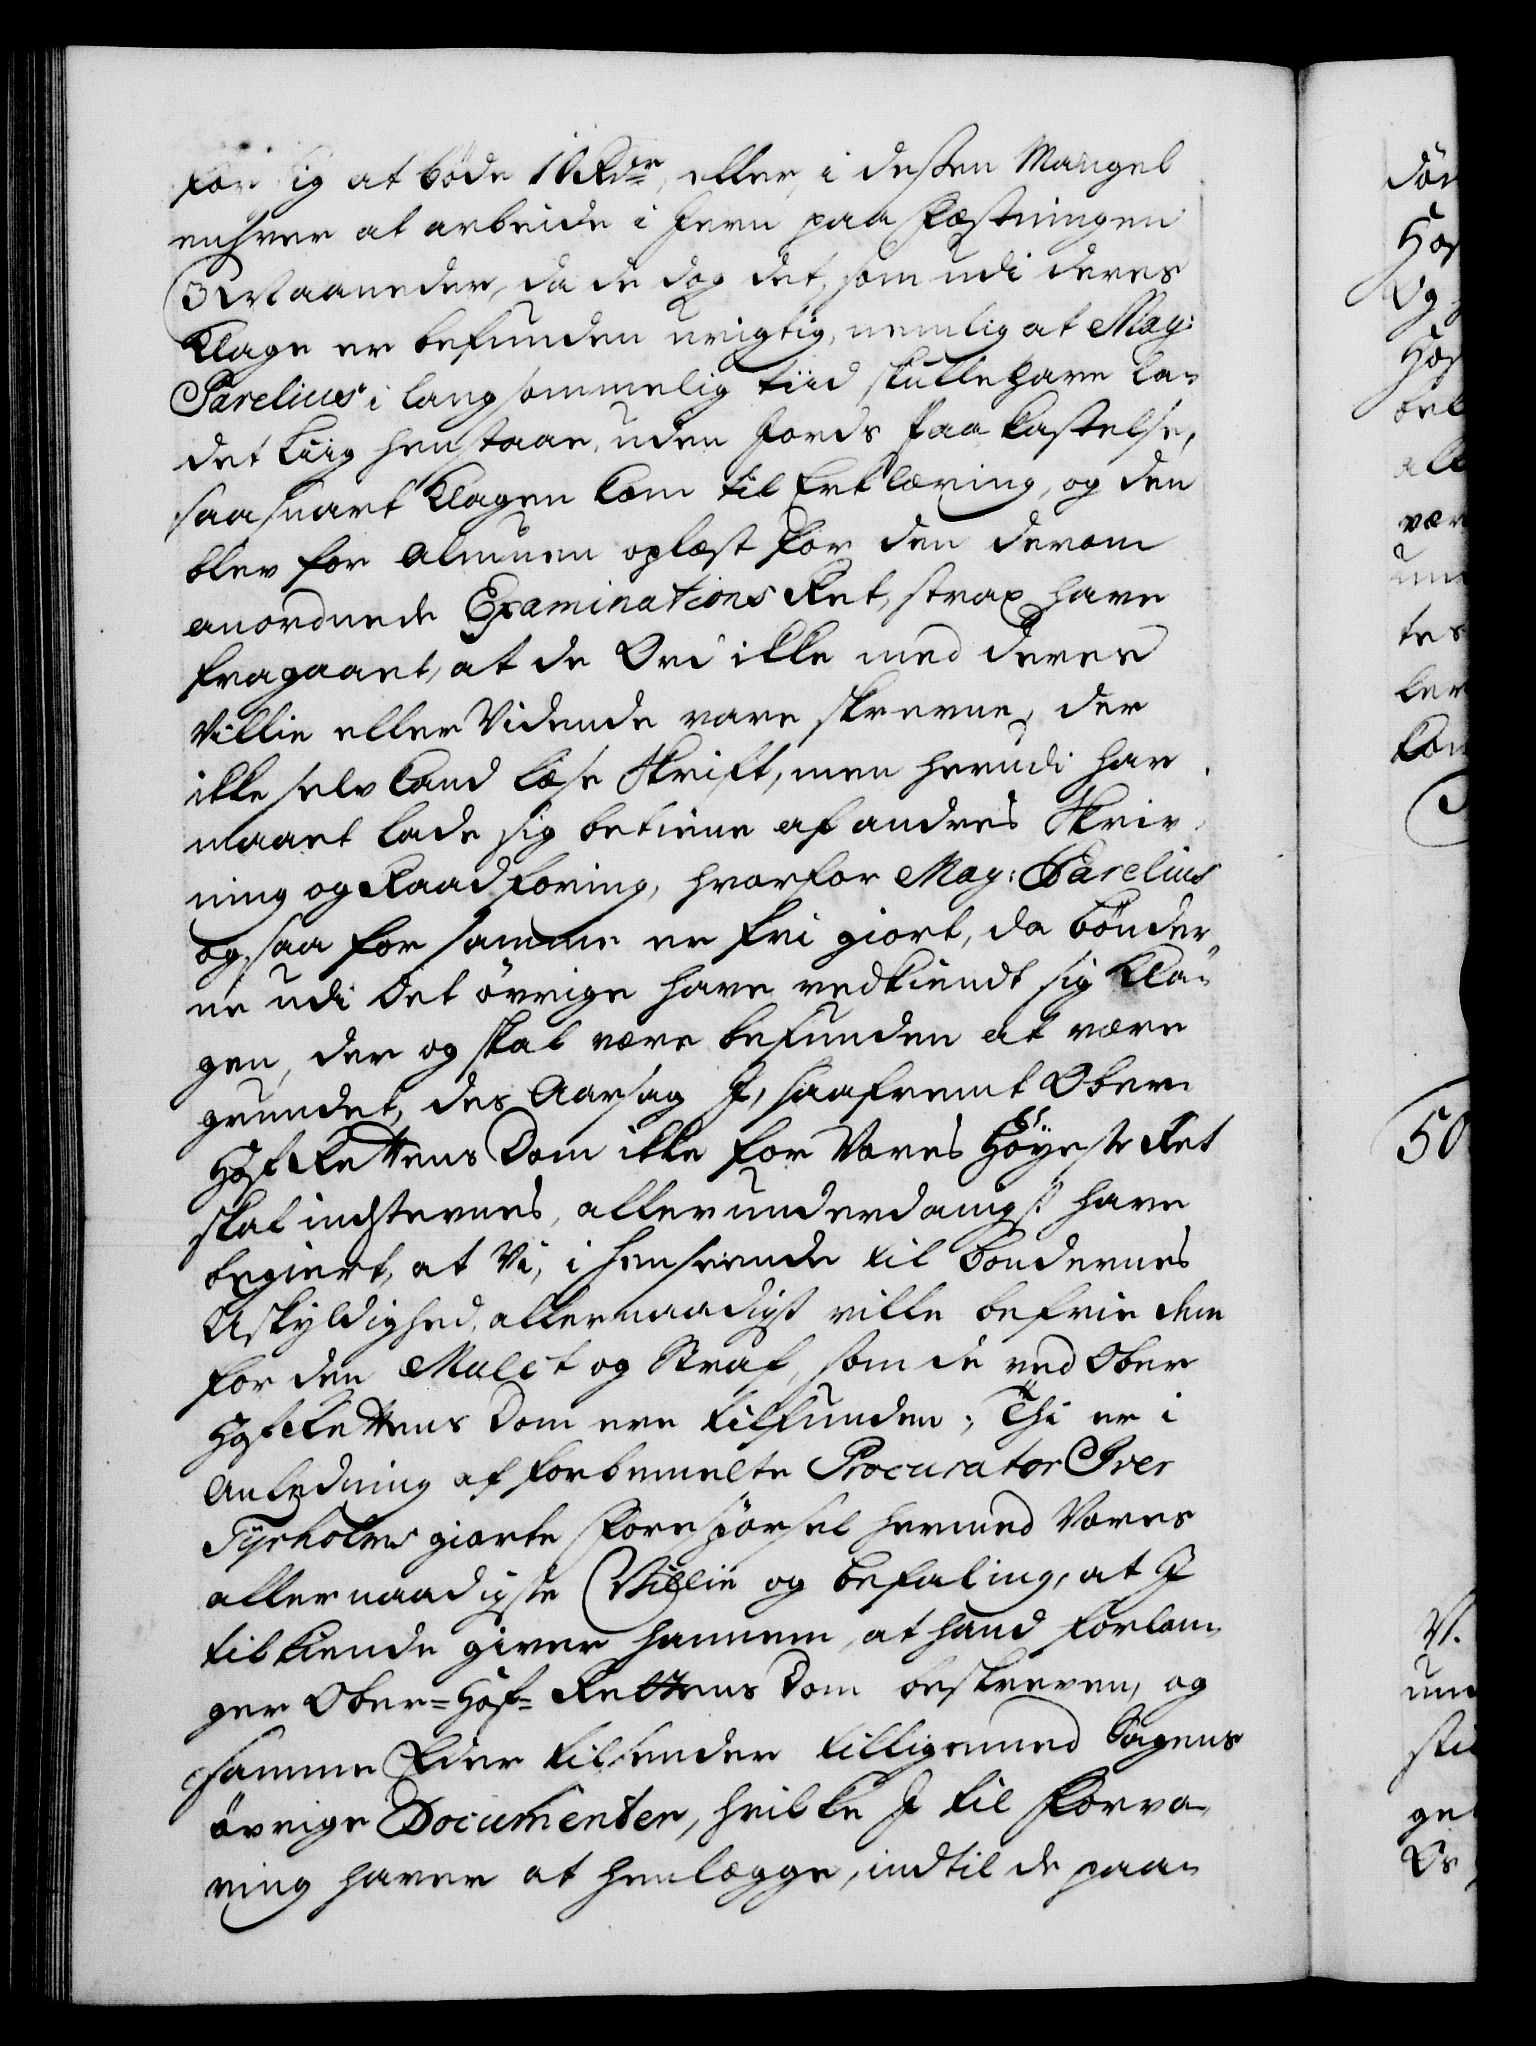 for sig at böde 10 Rdr, eller i desten Mangel
enhver at arbeide i Jern paa Fæstningen
3 Maaneder, da de dog det, som udi deres
Klage er befunden urigtig, nemlig at Mag:
Parelius i langsommelig tiid skulle have la-
det Liig henstaae, uden Jords Paakastelse,
saasnart Klagen kom til Erklæring, og den
blev for Almuen oplæst for den derom
anordnede Examinations Ret, strax have
fragaaet, at de Ord ikke med deres
Villie eller Vidende vare skrevne, der
ikke selv kand læse Skrift, men herudi har
maaet lade sig betiene af andres Skriv-
ning og Raadføring, hvorfor Mag: Parelius
og saa for samme er fri giort, da bönder-
ne udi det övrige have vedkiendt sig Kla-
gen, der og skal være befunden at være
grundet, des Aarsag J, saafremt Ober-
Hof-Rettens Dom ikke for Vores Höyeste Ret
skal indstevnes, allerunderdanigst have
begiert, at Vi, i henseende til bondernes
Uskyldighed, allernaadigst ville befrie dem
for den Mulct og Straf, som de ved Ober
Hof-Rettens Dom ere tilfunden; Thi er i
Anledning af forbemelte Procurator Iver
Tyrholms giorte Forespörsel hermed Vores
allernaadigste Villie og befaling, at J
tilkiende giver hannem, at hand forlan-
ger Ober-Hof-Rettens Dom beskreven, og
samme Eder tilsender tilligemed Sagens
övrige Documenter, hvilke J til Forva-
ring haver at henlægge, indtil de paa-